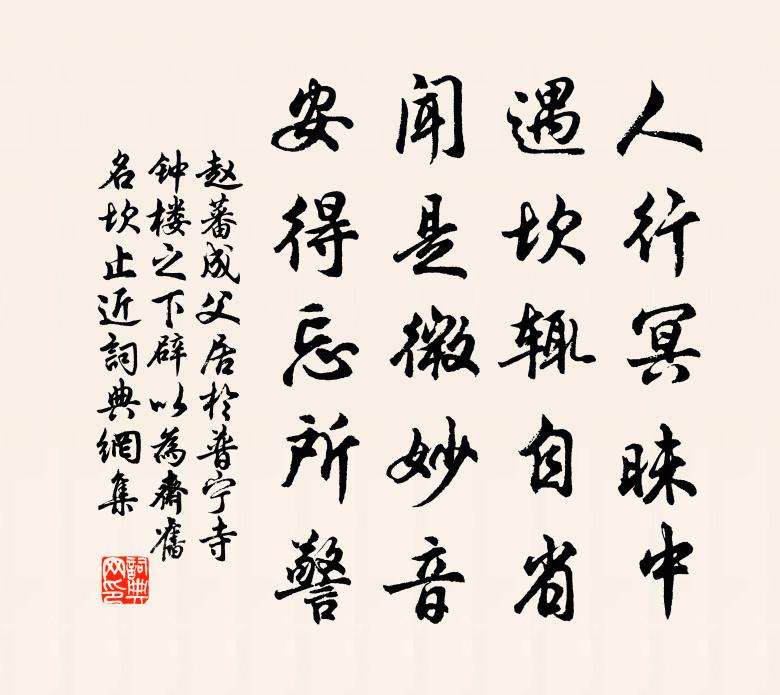 人行冥昧中
遇坎辄自省
闻是微妙音
安得忘所警
赵蕃成父居於普宁寺
钟楼之下辟以為齋舊
名坎止近詞典網集
詞典网印